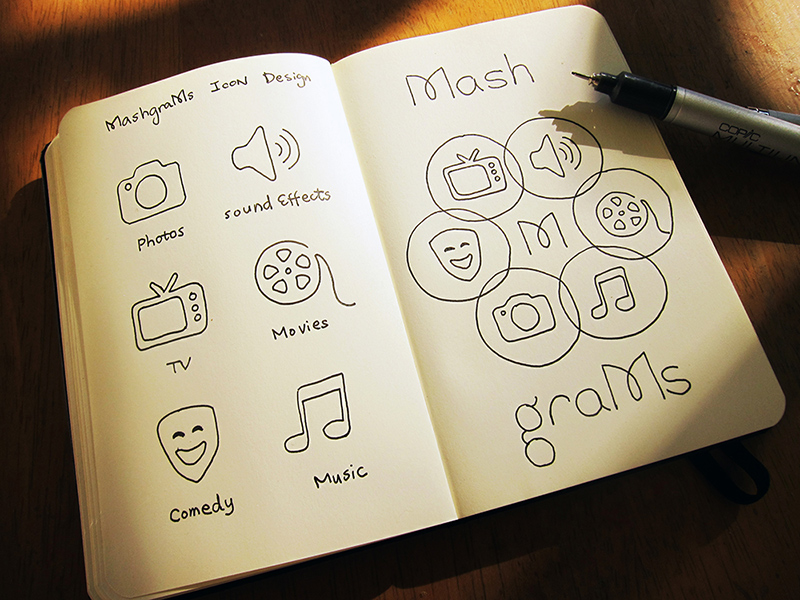 MashgraMs Icon Design
Photos
sound Effects
TV
Movies
Comedy
Music
Mash
M
graMs
COPIC